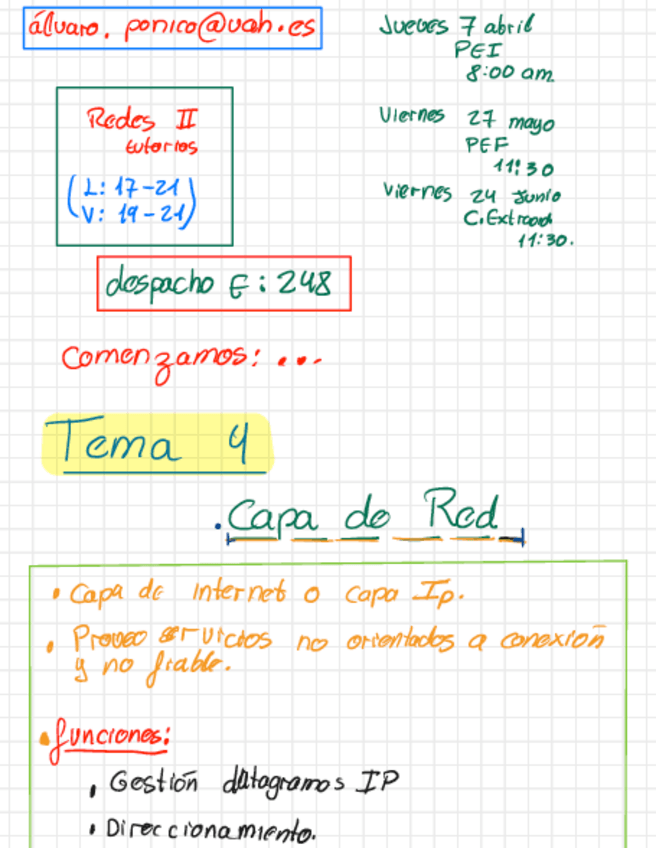 álvaro.ponico@uah.es
Redes II
tutorias
(L: 17-21
V: 19-21)
despacho E: 248
Jueves 7 abril
PEI
8:00 am.
Viernes 27 mayo
PEF
11:30
Viernes 24 Junio
C.Extraord
11:30.
Comenzamos: ...
Tema 4
. Capa de Red
• Capa de internet o capa Ip.
• Proveo servicios no orientados a conexión
y no fiable.
• funciones:
• Gestión datagramas IP
• Direccionamiento.